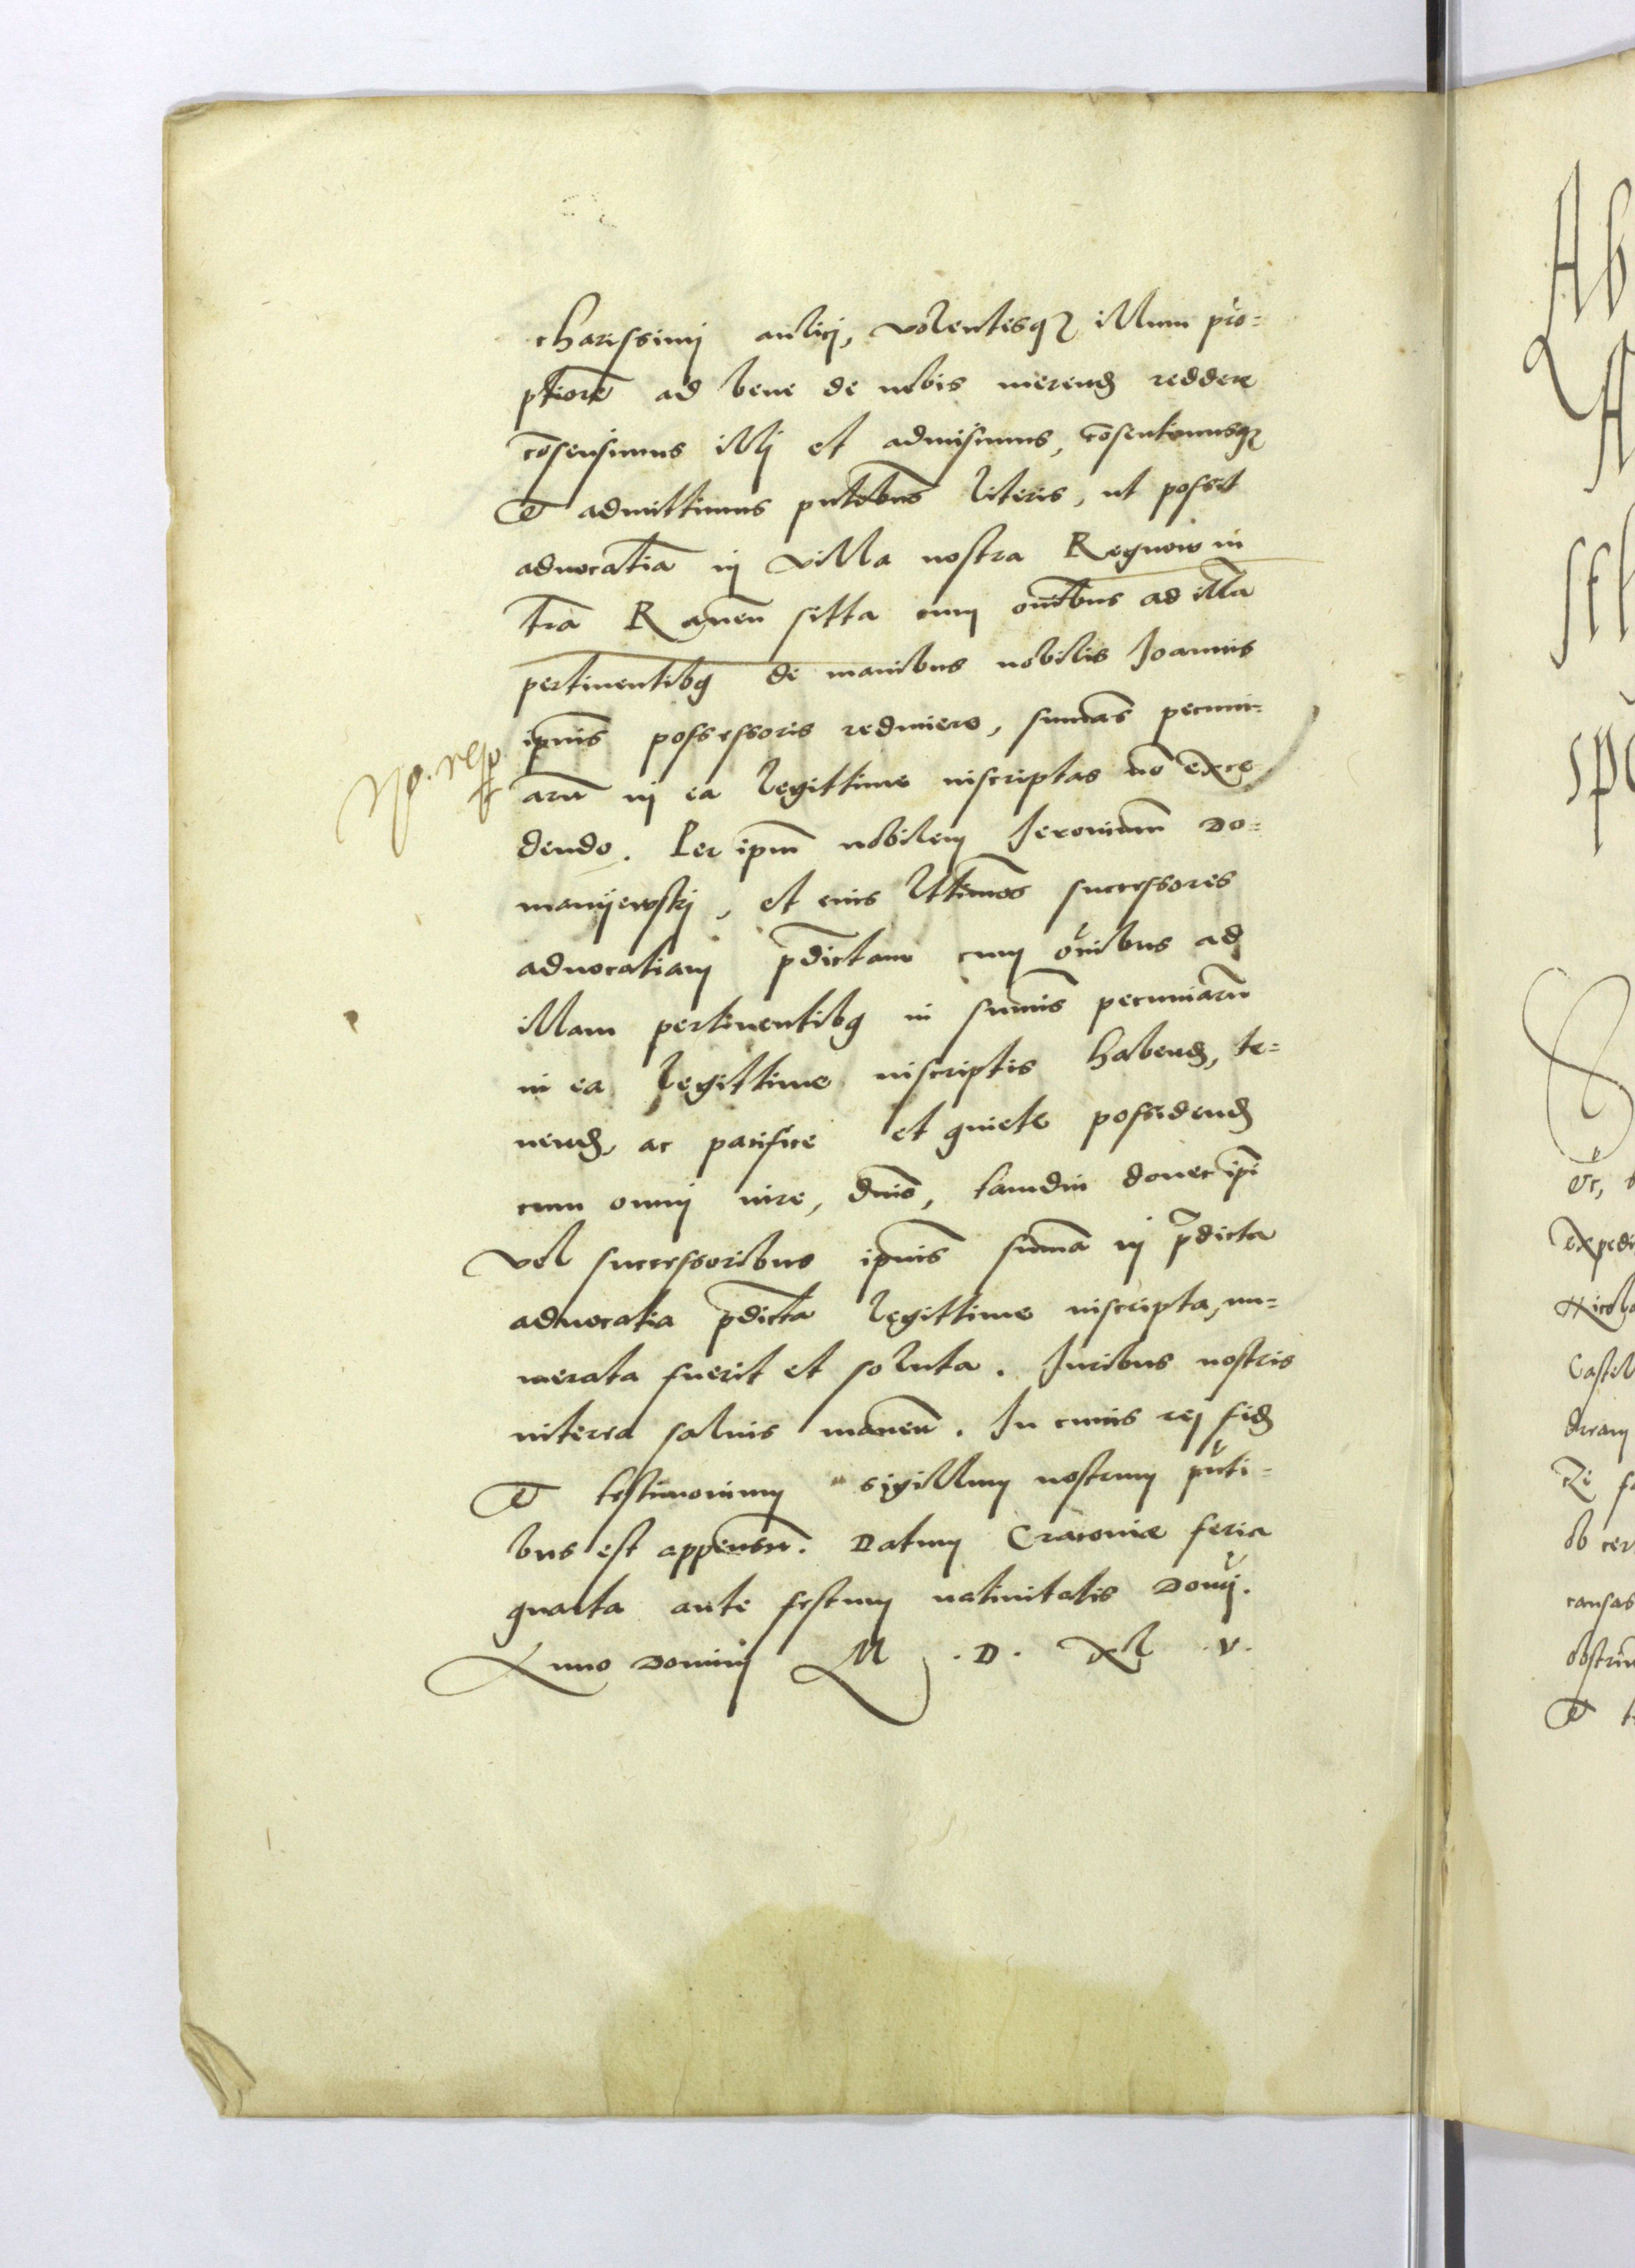 charissimj aulicj, volentesq3 illum pro=
ptiorē ad bene de nobis merend reddere
cōsensimus illj et admisimus, cōsentimusq3
Et admittimus pntibus literis, ut possit
aduocatiā in villa nostra Regnow in
tra Rauen sitta cum omibus ad illā
pertinentibq de manibus nobilis Joannis
ipius possessoris redimere, summās pecuni=
arū in ea legittime inscriptas nō exce
dendo. Per ipm nobilem Jeronimum Do=
manijewskj, et eius lttimos successores
aduocatiam pdictam cum oībus ad
illam pertinentibq in summis pecuniarū
in ea legittime inscriptis habend, te=
nend, ac pacifice et quiete possidend
cum omnj iure, dnio, tamdiu donec ipi
vel successoribus ipius summa in pdicta
aduocatia pdicta legittime inscripta, nu=
merata fuerit et soluta. Juribus nostris
interea saluis manen. In cuius rej fid
Et testimonium sigillum nostrum pnti=
bus est appensū. Datum Cracouiæ feria
quarta ante festum natiuitatis Domj.
Anno Dominj M . D . XL . V.
Ab
A
sp
Et,
expedi
Nicola
Castel
ob cer
causas
obstrin
Et